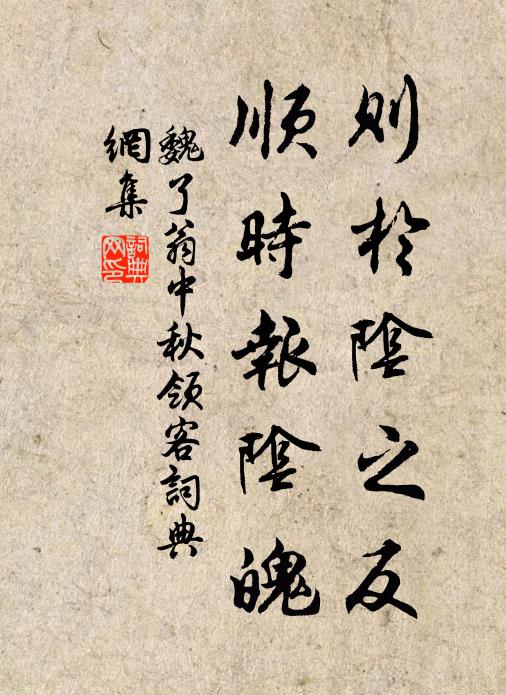 則於陰之反
順時報陰魄
魏了翁中秋領客詞典
網集
詞典
網印